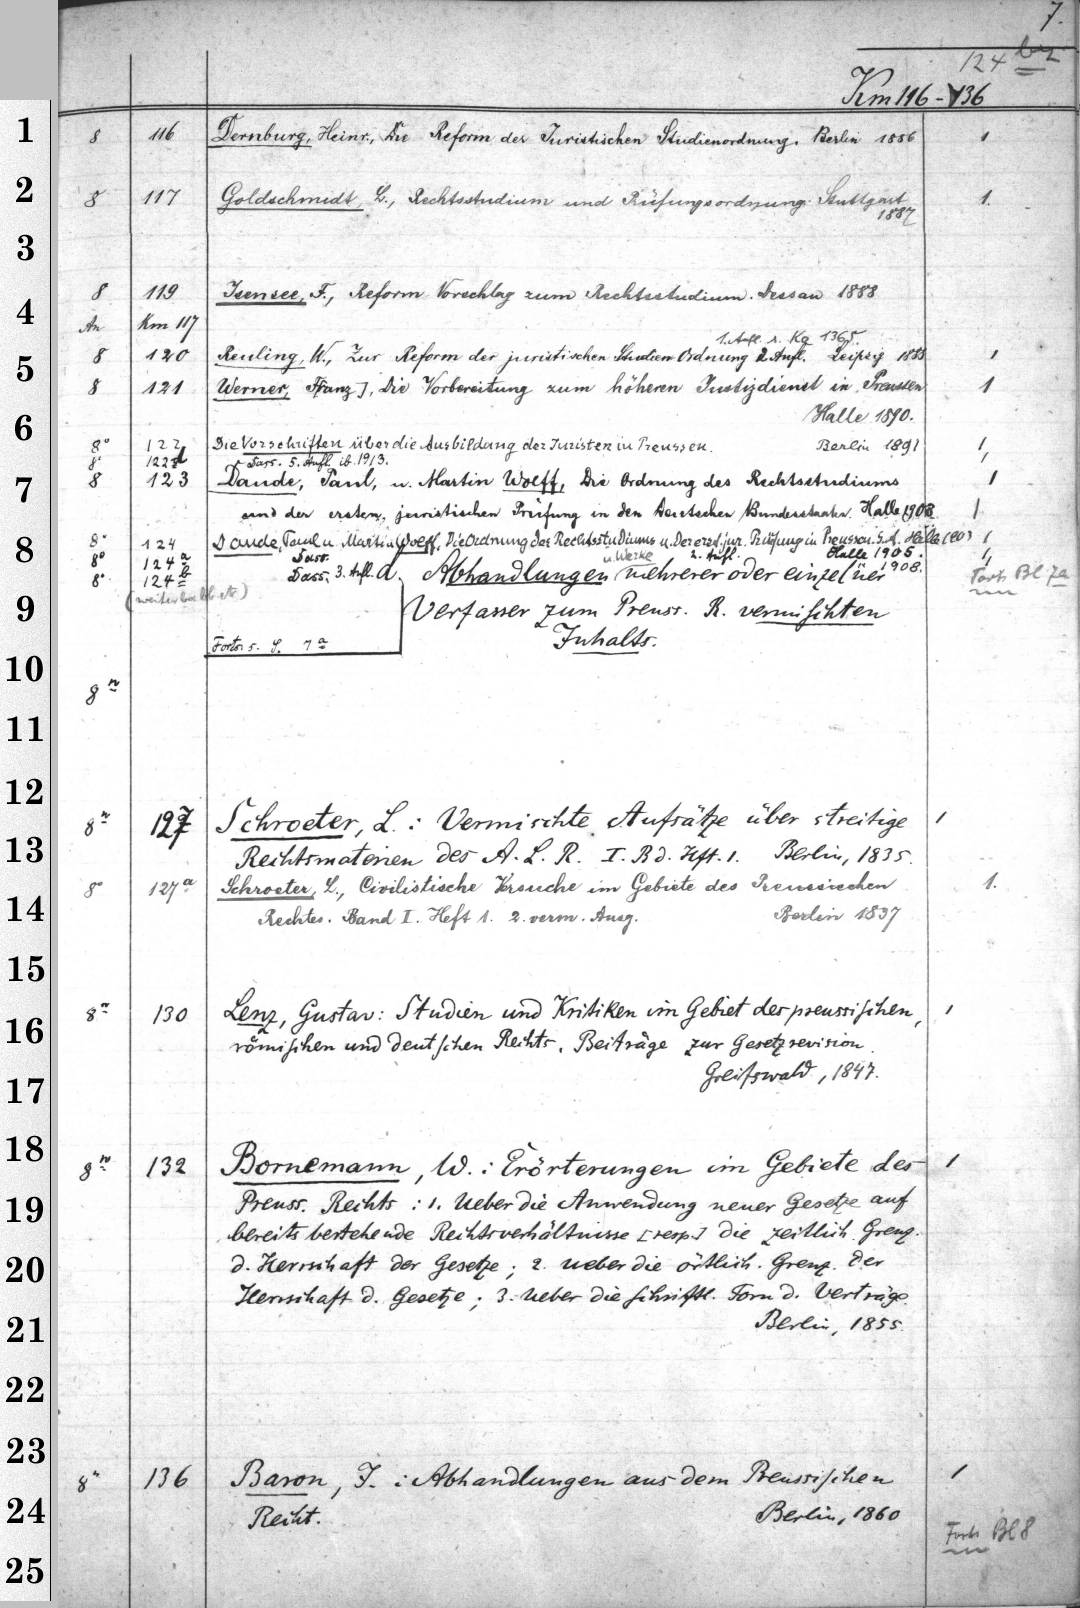 7.
124 bz
Km 116-136
1
8 116 Dernburg, Heinr., Die Reform der Juristischen Studienordnung. Berlin 1886 1
2
8 117 Goldschmidt, L., Rechtsstudium und Prüfungsordnung. Stuttgart 1.
1887
3
8 119 Isensee, F., Reform Vorschlag zum Rechtsstudium. Dessau 1888
4
An Km 117
1. Aufl. s. Kg 1365.
8 120 Reuling, W., Zur Reform der juristischen Studien Ordnung 2. Aufl. Leipzig 1
5
8 121 Werner, F[ranz], Die Vorbereitung zum höheren Justizdienst in Preussen 1
Halle 1890.
6
8° 122 Die Vorschriften über die Ausbildung der Juristen in Preussen. Berlin 1891 1,
8° 122 d Dass. 5. Aufl. ib. 1913. 1
7
8 123 Daude, Paul, u. Martin Wolff, Die Ordnung des Rechtsstudiums 1
und der ersten juristischen Prüfung in den Deutschen Bundesstaaten. Halle 1903 1
8
8° 124 Daude, Paul u. Martin Wolff, Die Ordnung des Rechtsstudiums u. der erst. jur. Prüfung in Preussen. Halle 1903 1
8° 124 a Dass. 2. Aufl. Halle 1905. 1,
8° 124 b Dass. 3. Aufl. 1908.
d. Abhandlungen u. Werke mehrerer oder einzelner Forts. Bl 7a
9
Verfasser zum Preuss. R. vermischten
Inhalts.
Forts. s. S. 7a
10
8°
11
12
8° 127 Schroeter, L. : Vermischte Aufsätze über streitige 1
13
Rechtsmaterien des A. L. R. I. Bd. Hft. 1. Berlin, 1835.
8° 127a Schroeter, L., Civilistische Versuche im Gebiete des Preussischen 1.
14
Rechtes. Band I. Heft 1. 2. verm. Ausg. Berlin 1837
15
8° 130 Lenz, Gustav: Studien und Kritiken im Gebiet des preussischen, 1
16
römischen und deutschen Rechts. Beiträge zur Gesetzrevision
Greifswald, 1847.
17
18
8° 132 Bornemann, W. : Erörterungen im Gebiete des 1
19
Preuss. Rechts : 1. Ueber die Anwendung neuer Gesetze auf
bereits bestehende Rechtsverhältnisse [resp.] die zeitlich. Grenz.
20
d. Herrschaft der Gesetze ; 2. Ueber die örtlich. Grenz. der
Herrschaft d. Gesetze ; 3. Ueber die schriftl. Form d. Verträge.
21
Berlin, 1855.
22
23
8° 136 Baron, J. : Abhandlungen aus dem Preussischen 1
24
Recht. Berlin, 1860
Forts Bl 8
25